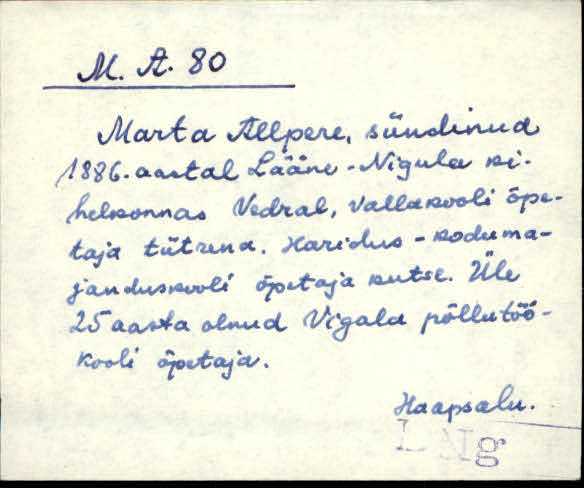 M. A. 80
Marta Allpere, sündinud
1886. aastal Lääne-Nigula ki-
helkonnas Vedral, vallakooli õpe-
taja tütrena. Haridus - koduma-
janduskooli õpetaja kutse. Üle
25 aasta olnud Vigala põllutöö-
kooli õpetaja.
Haapsalu.
LNg